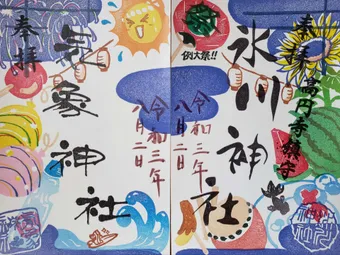 奉拝 高円寺鎮守
氷川神社
例大祭!!
令和三年
八月二日
奉拝
気象神社
令和三年
八月二日